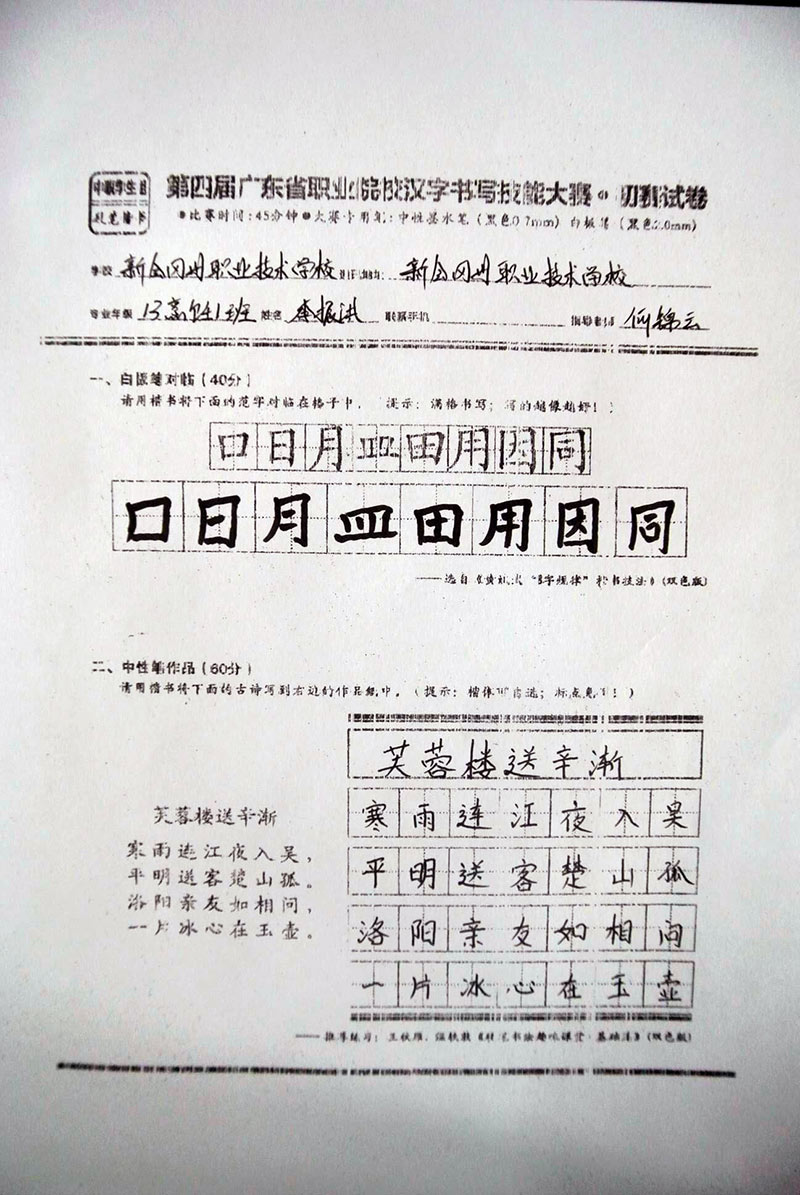 中职学生组
硬笔楷书
第四届广东省职业院校汉字书写技能大赛·初赛试卷
●比赛时间：45分钟●大赛专用笔：中性墨水笔（黑色0.7mm）白板笔（黑色2.0mm）
学校 新会冈州职业技术学校 新会冈州职业技术学校
专业年级 13高卫1班 姓名 李振洪 联系手机 指导老师 何锦云
一、白板笔对临（40分）
请用楷书将下面的范字对临在格子中。（提示：满格书写；写的越像越好！）
口日月皿田用因同
口日月皿田用因同
——选自《 "8字规律"楷书技法》（双色版）
二、中性笔作品（60分）
请用楷书将下面的古诗写到右边的作品纸中。（提示：楷体可自选；标点免写！）
芙蓉楼送辛渐
芙蓉楼送辛渐
寒雨连江夜入吴，
平明送客楚山孤。
洛阳亲友如相问，
一片冰心在玉壶。
寒雨連江夜入吴
平明送客楚山孤
洛阳亲友如相问
一片冰心在玉壶
——推荐练习： 书法趣味课堂·基础 》（双色版）